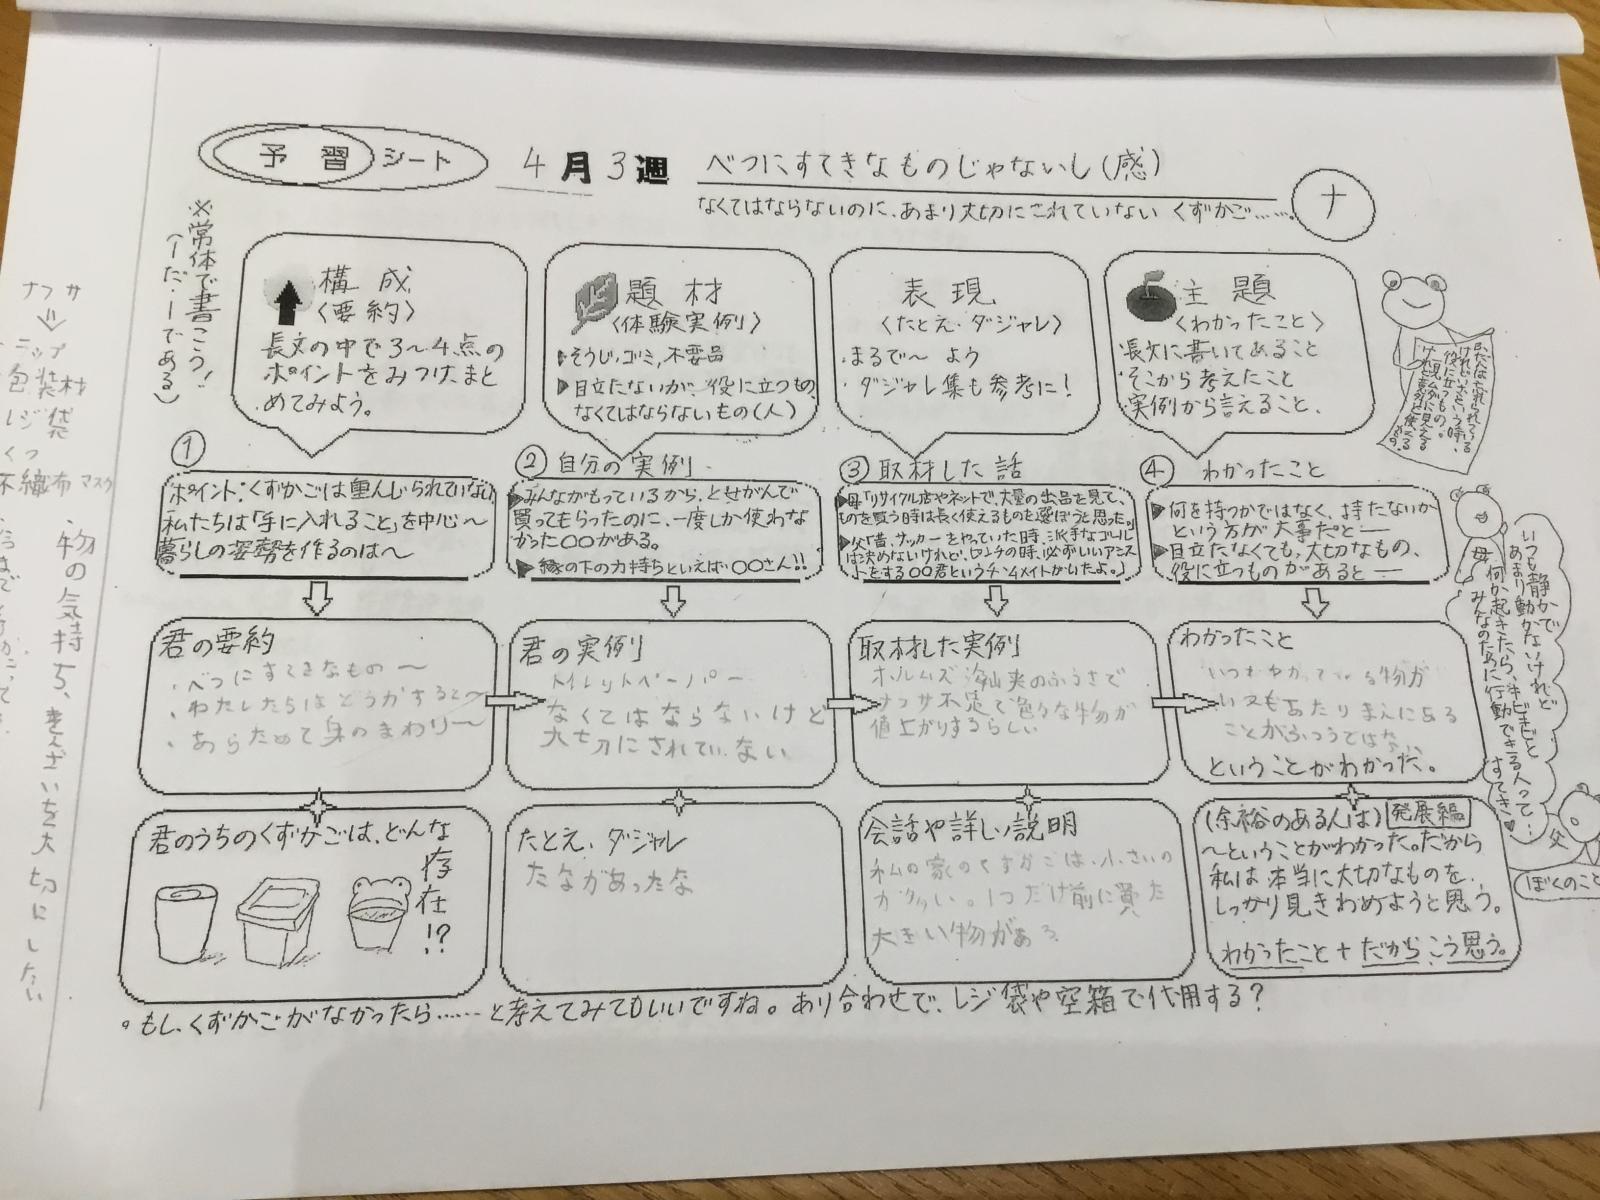 予習シート
4月3週
べつにすてきなものじゃないし(感)
なくてはならないのに、あまり大切にされていない くずかご……。
ナ
※常体で書こう!
(ーだ・ーである)
構成
〈要約〉
長文の中で3〜4点の
ポイントをみつけ、まと
めてみよう。
題材
〈体験実例〉
▶そうじ、ゴミ、不要品
▶目立たないが、役に立つもの、
なくてはならないもの(人)
表現
〈たとえ・ダジャレ〉
・まるで〜 よう
・ダジャレ集も参考に!
主題
〈わかったこと〉
・長文に書いてあること
・そこから考えたこと
・実例から言えること、
①
ポイント:くずかごは重んじられていない
私たちは「手に入れること」を中心〜
暮らしの姿勢を作るのは〜
② 自分の実例
▶みんながもっているから、とせがんで
買ってもらったのに、一度しか使わな
かった〇〇がある。
▶縁の下の力持ちといえば〇〇さん!!
③ 取材した話
▶母「リサイクル店やネットで、大量の出品を見て、
ものを買う時は長く使えるものを選ぼうと思った。」
▶父「昔、サッカーをやっていた時、派手なゴール
は決めないけれど、ピンチの時、必ずいいアシス
トをする〇〇君というチームメイトがいたよ。」
④ わかったこと
▶何を持つかではなく、持たないか
という方が大事だと―
▶目立たなくても、大切なもの、
役に立つものがあると―
君の要約
・べつにすてきなもの〜
・わたしたちはどうかすると〜
・あらためて身のまわり〜
君の実例
トイレットペーパー
なくてはならないけど
大切にされていない
取材した実例
ホルムズ海峡のふうさで
ナフサ不足で色々な物が
値上がりするらしい
わかったこと
いつもあたりまえにある
ことがふつうではない
ということがわかった。
君のうちのくずかごは、どんな
存在!?
たとえ、ダジャレ
たながあったな
会話や詳しい説明
私の家のくずかごは、小さいの
が多い。1つだけ前に買った
大きい物がある
(余裕のある人は) 発展編
〜ということがわかった。だから
私は本当に大切なものを、
しっかり見きわめようと思う。
わかったこと + だからこう思う。
。もし、くずかごがなかったら……と考えてみてもいいですね。あり合わせで、レジ袋や空箱で代用する?
いつも静かで
あまり動かないけれど
何か起きたら、キビキビと
みんなのために行動できる人って…
すてき♥
母
父
ぼくのこと
ナフサ
ラップ
包装材
レジ袋
くつ
不織布マスク
物の気持ち、
を大切にしたい